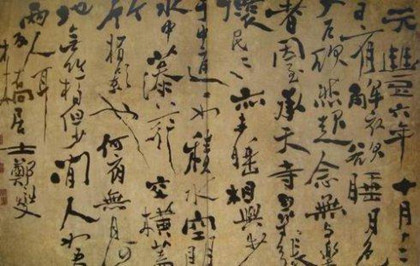 元豐六年十月十二
日夜解衣欲睡月色
入戶欣然起念無與樂
者因至承天寺尋張
懷民民亦未睡相與步
于中庭如積水空明
水中藻荇交橫蓋
竹柏影也何夜無月何
地無竹柏但少閒人如吾
兩人耳
板橋居士鄭燮